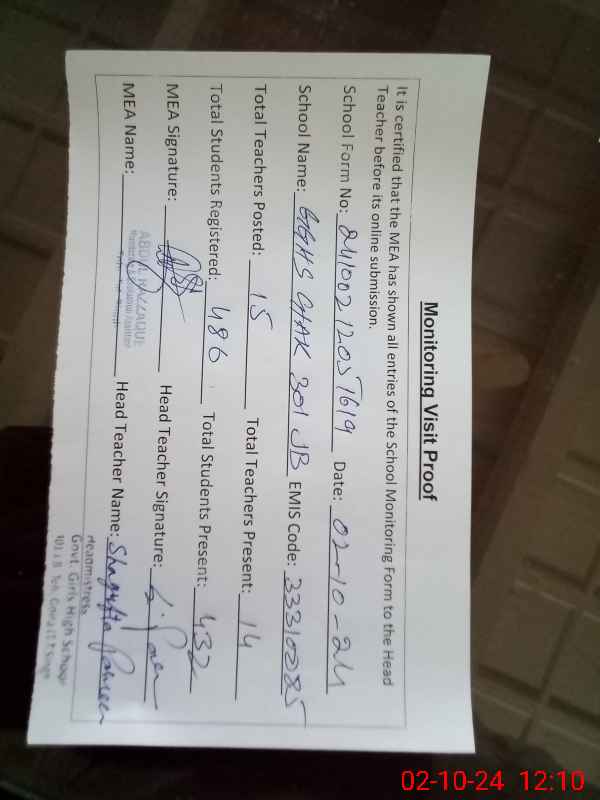 Monitoring Visit Proof
It is certified that the MEA has shown all entries of the School Monitoring Form to the Head
Teacher before its online submission.
School Form No: 241002 1205 1619 Date: 02-10-24
School Name: GGHS CHAK 301 JB EMIS Code: 33310285
Total Teachers Posted: 15 Total Teachers Present: 14
Total Students Registered: 486 Total Students Present: 432
MEA Signature: Head Teacher Signature:
MEA Name: ABDUL RAZZAQUE Head Teacher Name: Shagufta Parveen
Headmistress
Govt. Girls High School
02-10-24 12:10